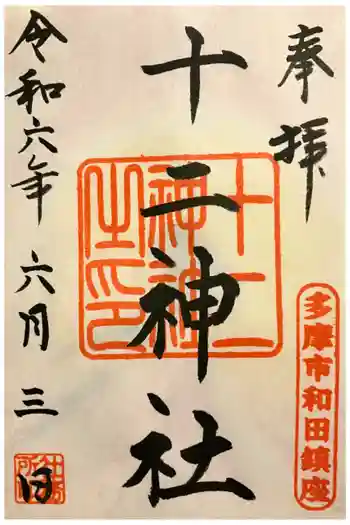 奉拝
多摩市和田鎮座
十二神社
十二神社之印
令和六年 六月 三日